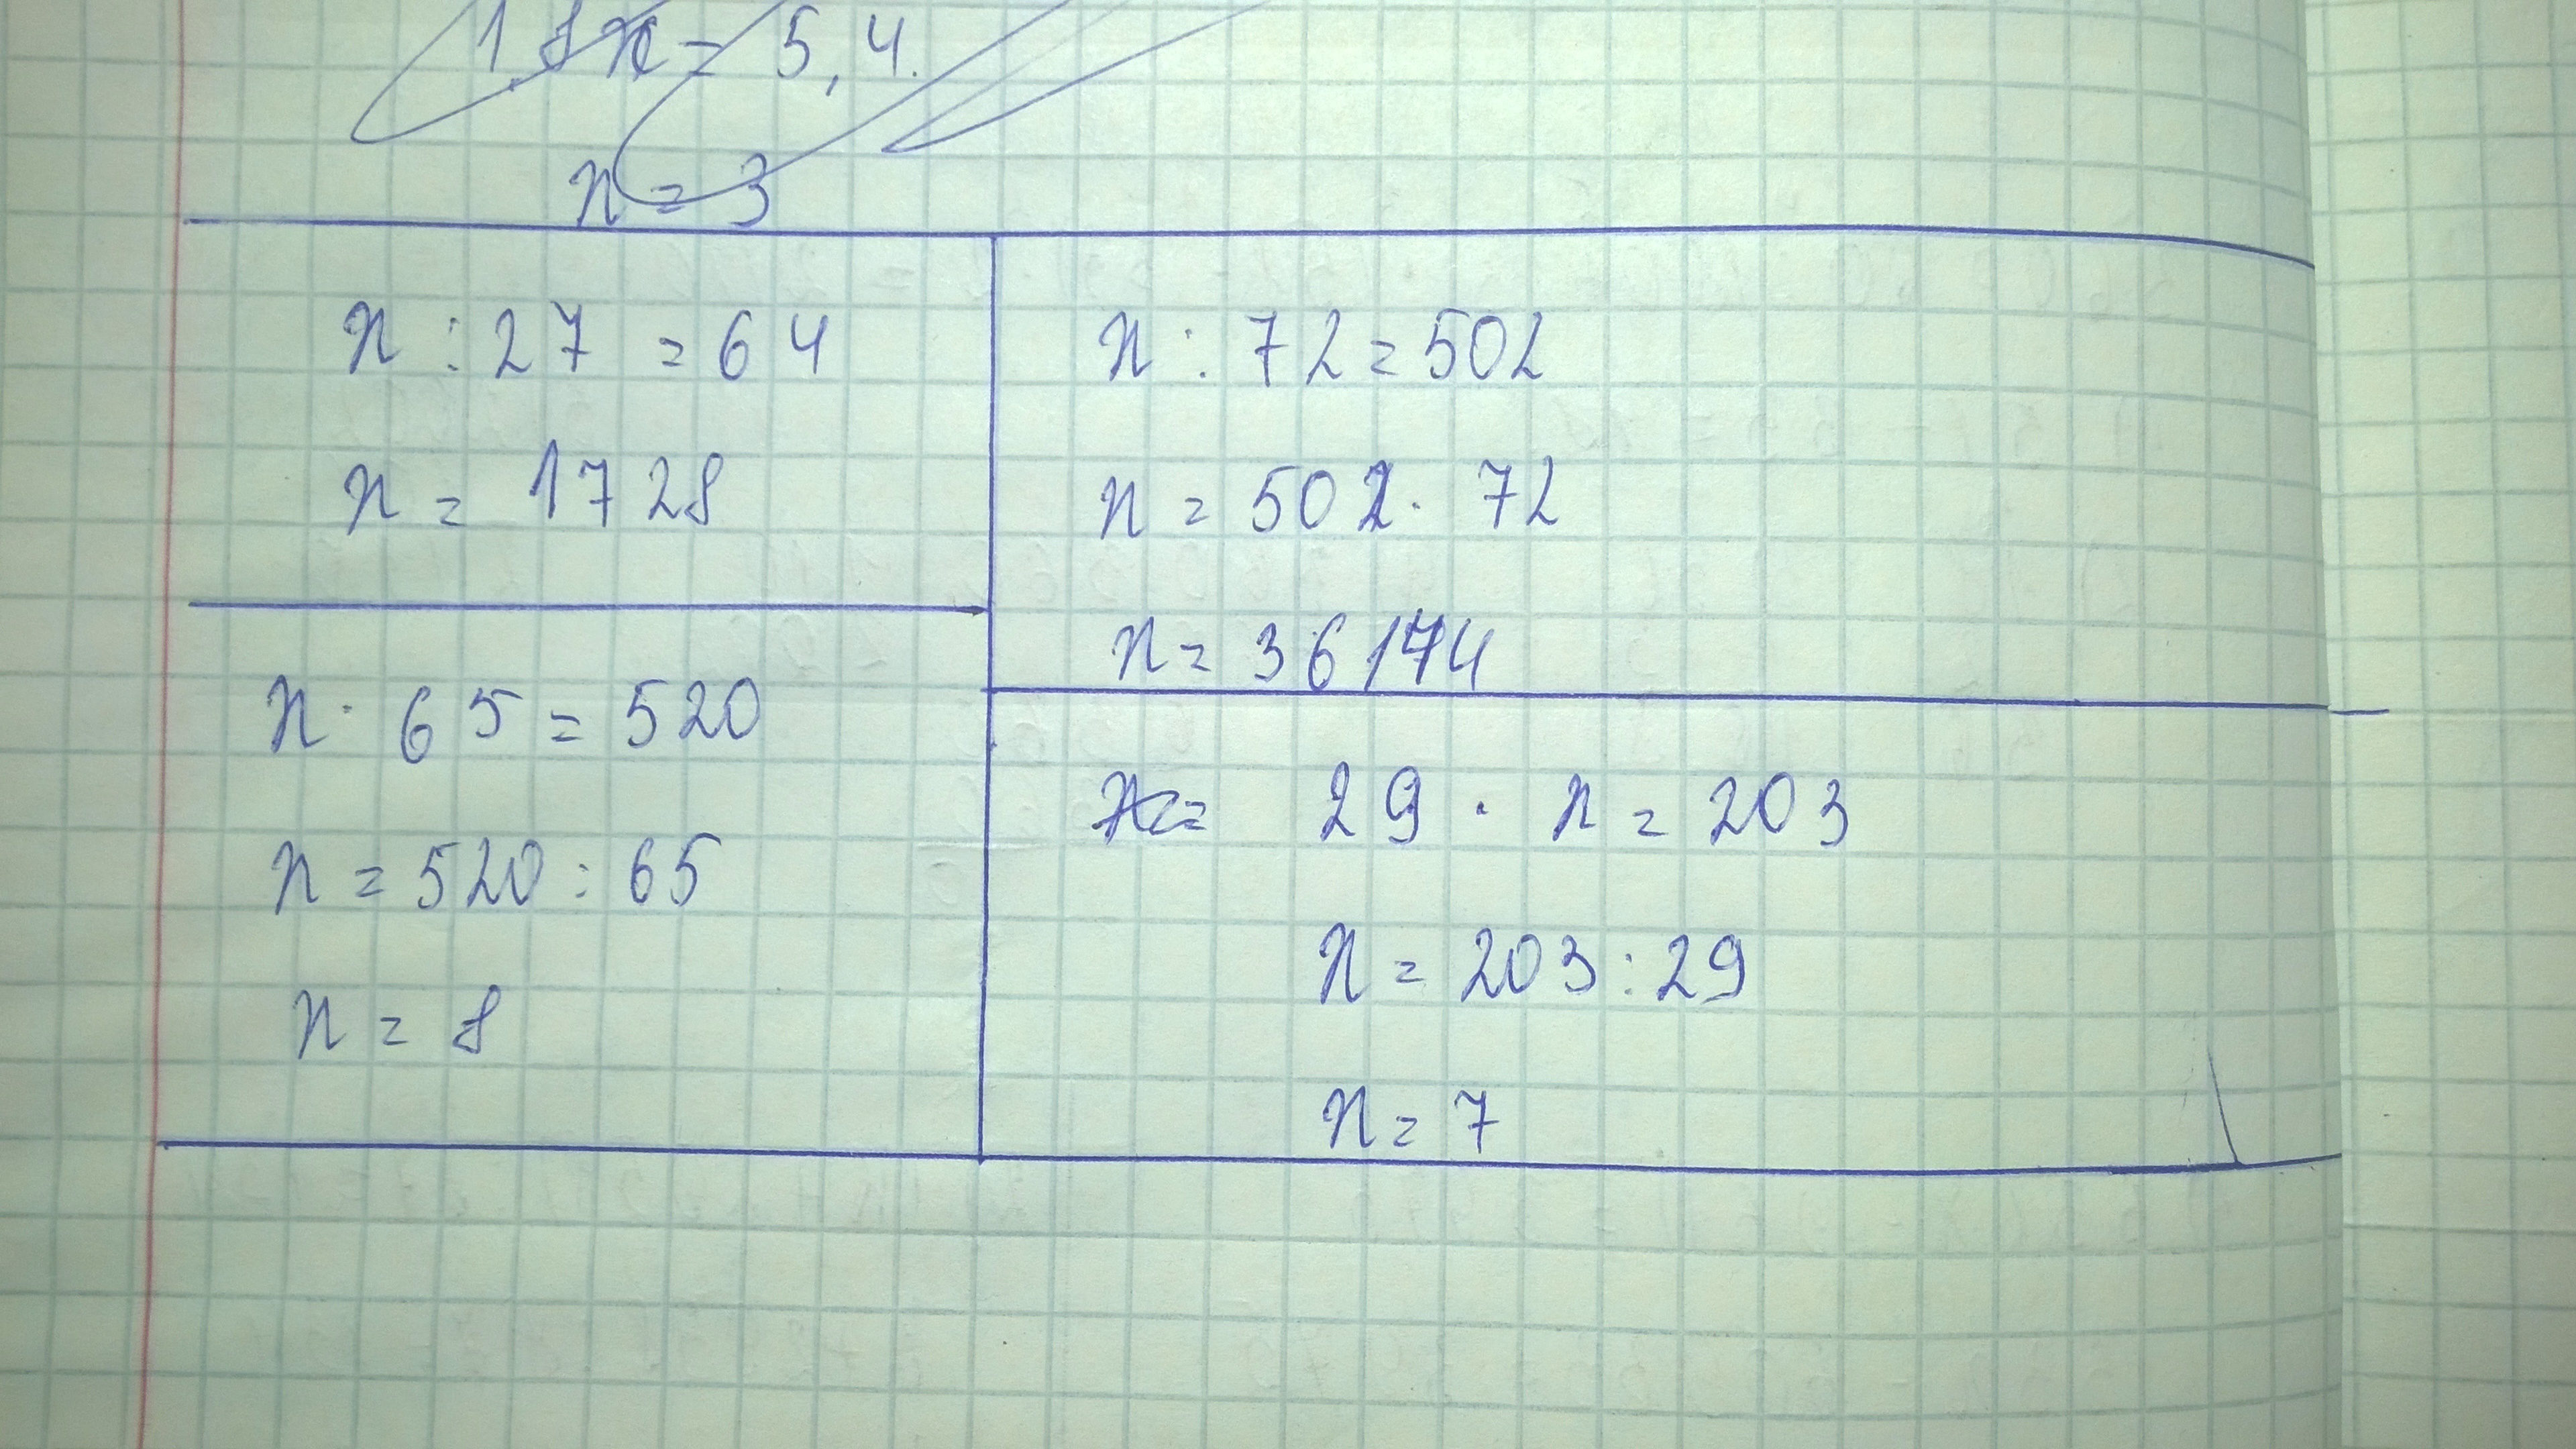 1,8x = 5,4.
x = 3
x : 27 = 64
x = 1728
x · 65 = 520
x = 520 : 65
x = 8
x : 72 = 502
x = 502 · 72
x = 36144
29 · x = 203
x = 203 : 29
x = 7